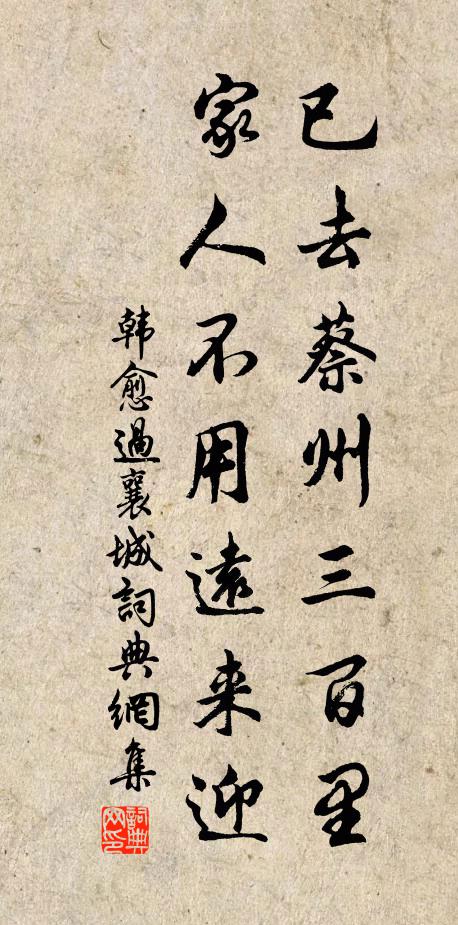 已去蔡州三百里
家人不用遠来迎
韩愈過襄城詞典網集
詞典网印